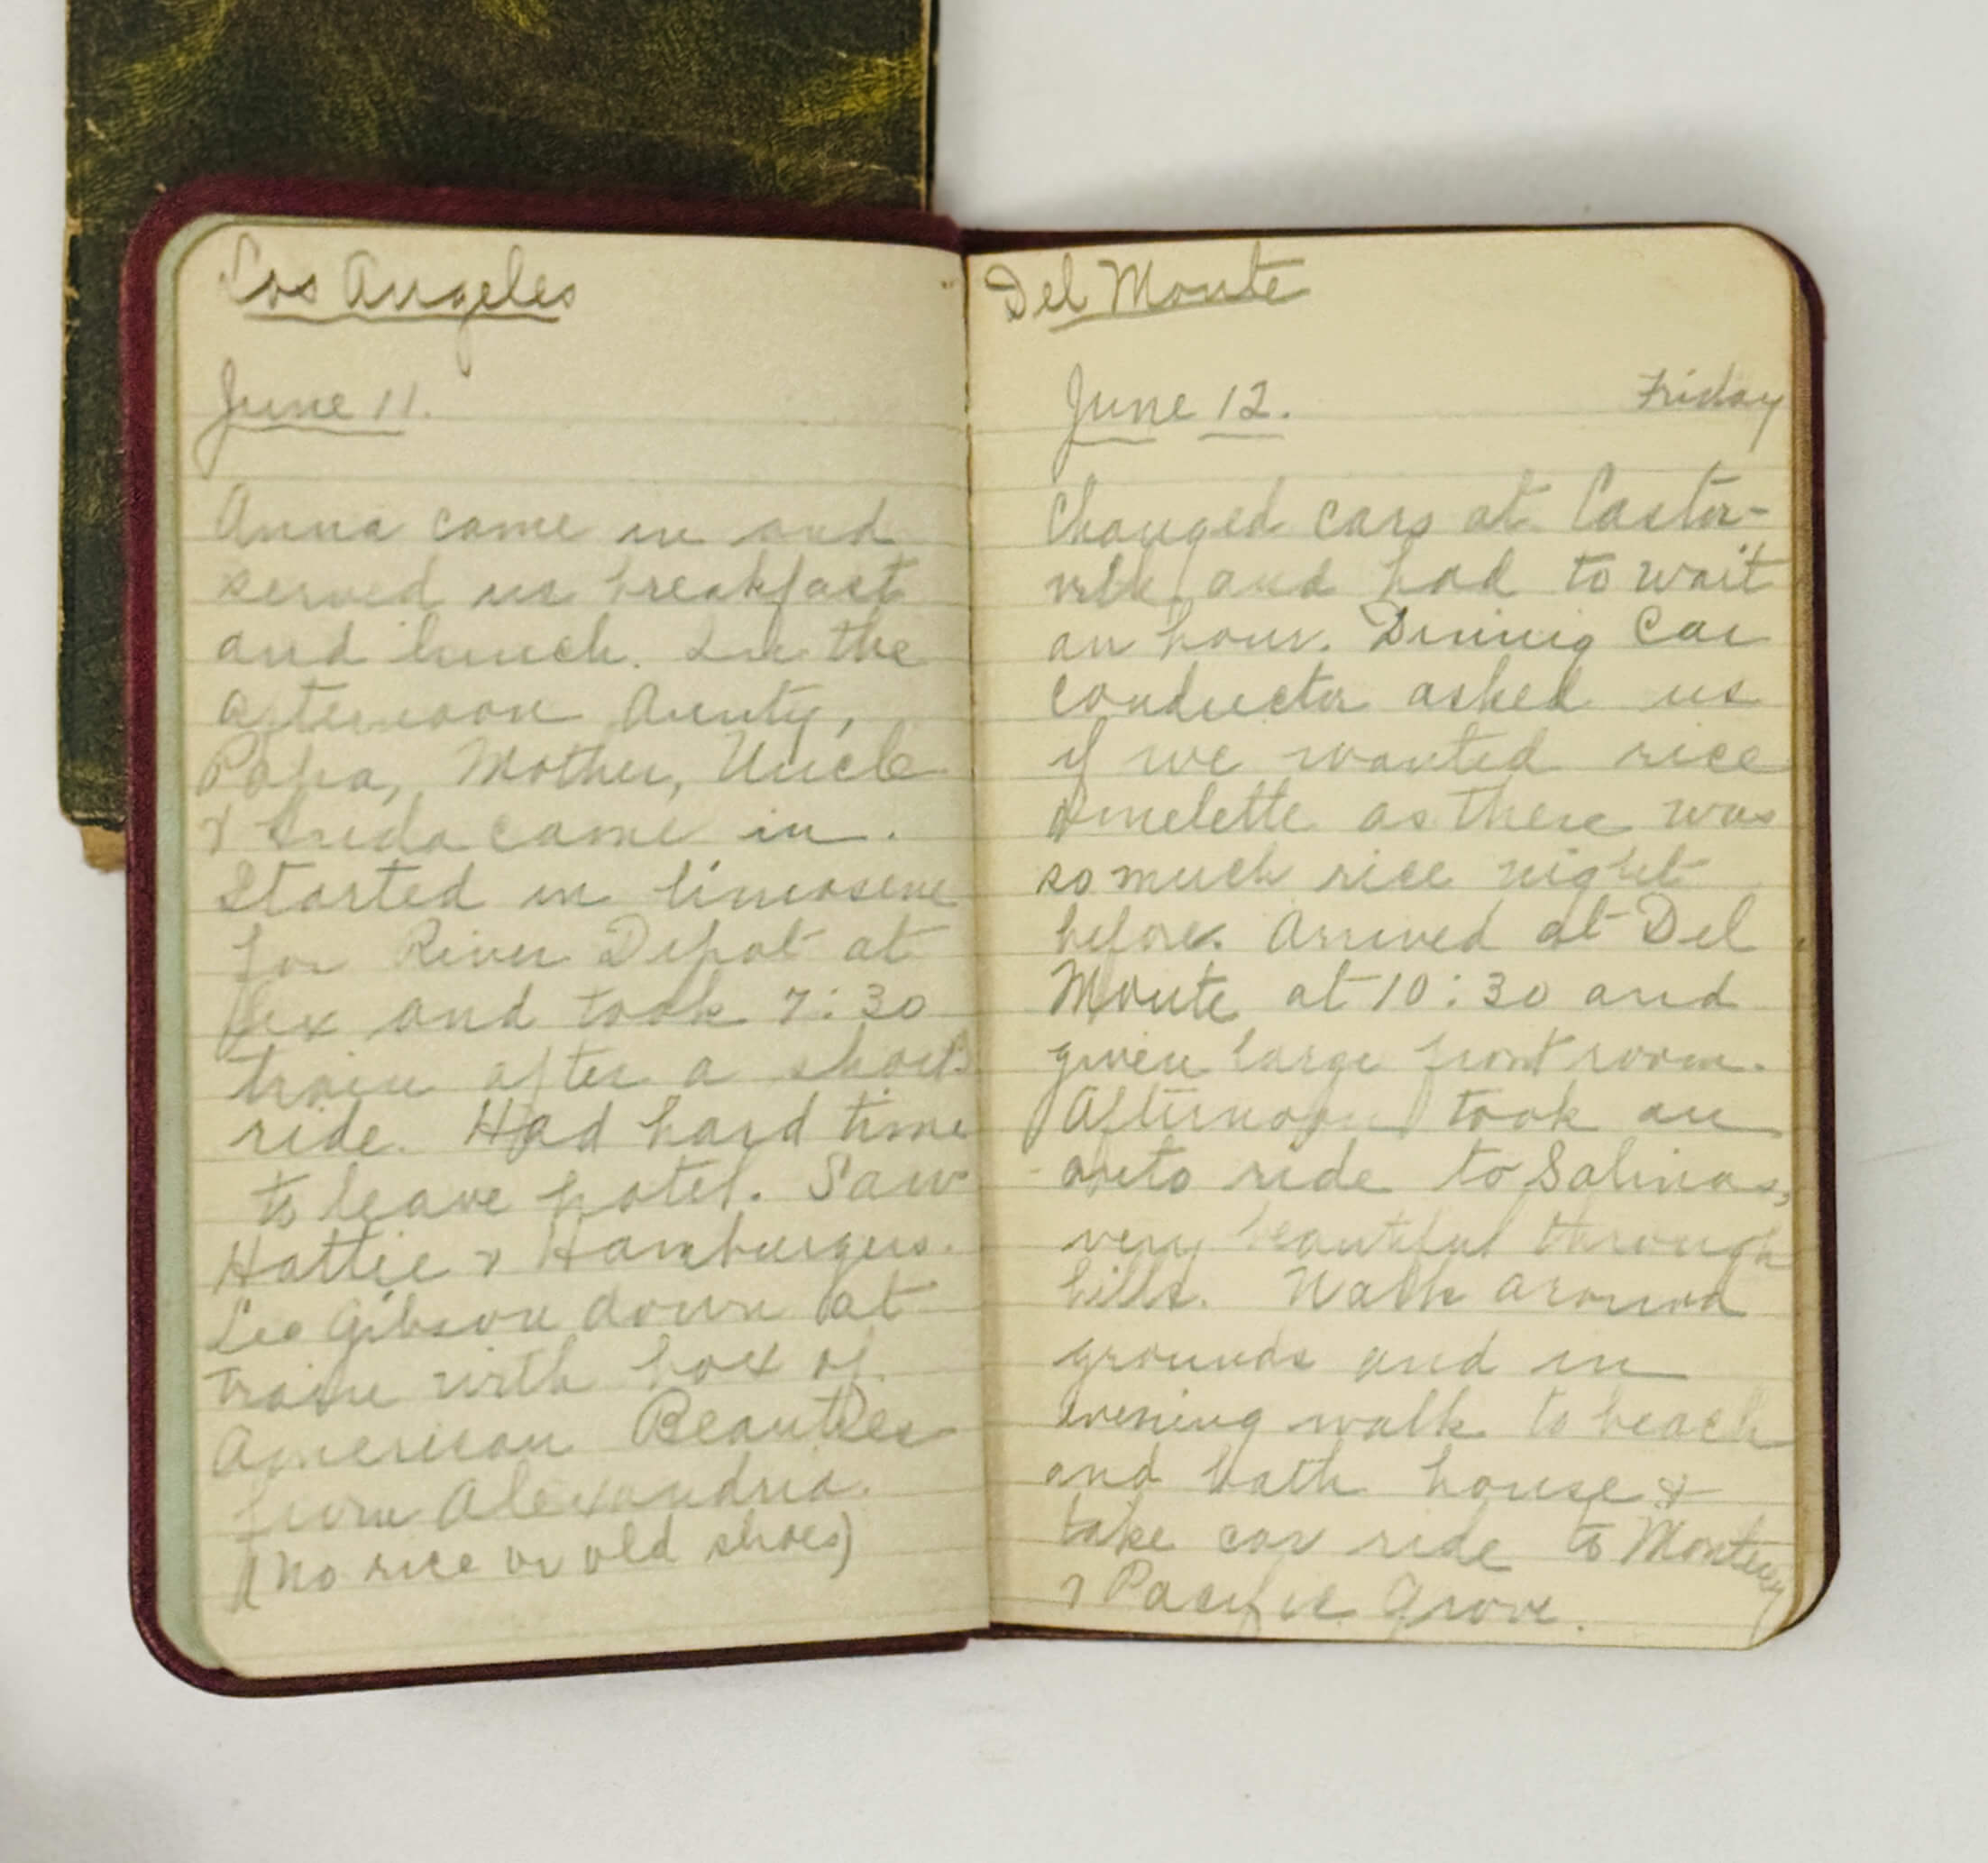 Los Angeles
June 11.
Anna came in and
served us breakfast
and lunch. In the
afternoon Aunty,
Papa, Mother, Uncle
& Frida came in.
Started in limosene
for River Depot at
six and took 7:30
train after a short
ride. Had hard time
to leave hotel. Saw
Hattie & Hamburgers.
Leo Gibson down at
train with box of
American Beauties
from Alexandria.
(No rice or old shoes)
Del Monte
June 12. Friday
Changed cars at Castor-
ville and had to wait
an hour. Dining Car
conductor asked us
if we wanted rice
omelette as there was
so much rice night
before. Arrived at Del
Monte at 10:30 and
given large front room.
Afternoon took an
auto ride to Salinas,
very beautiful through
hills. Walk around
grounds and in
evening walk to beach
and bath house &
take car ride to Monterey
& Pacific Grove.